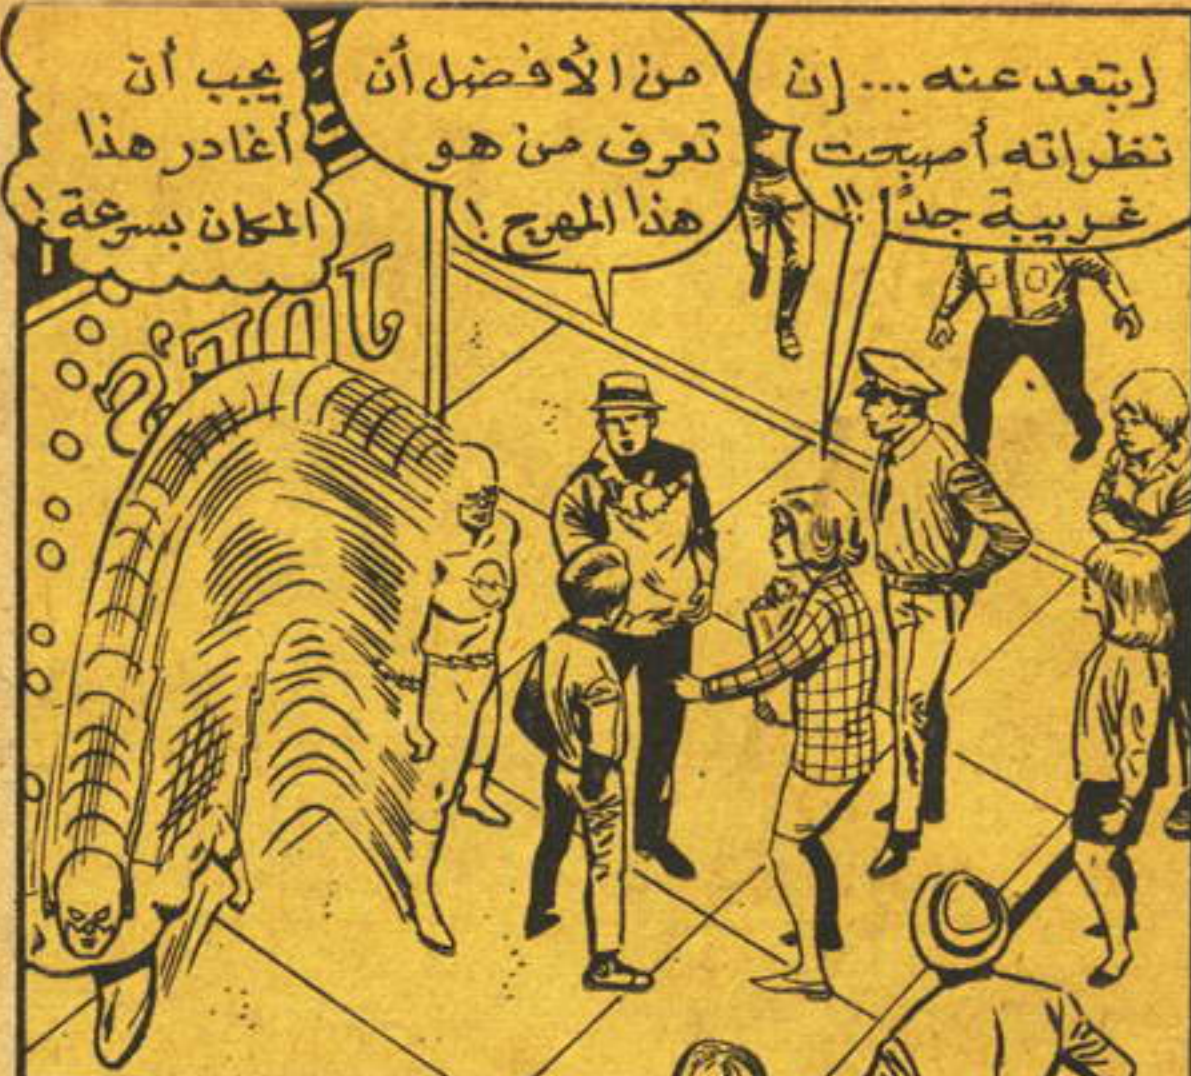 إبتعد عنه ... إن
نظراته أصبحت
غريبة جداً !!
من الأفضل أن
تعرف من هو
هذا المهرج !
يجب أن
أغادر هذا
المكان بسرعة !
JOE'S